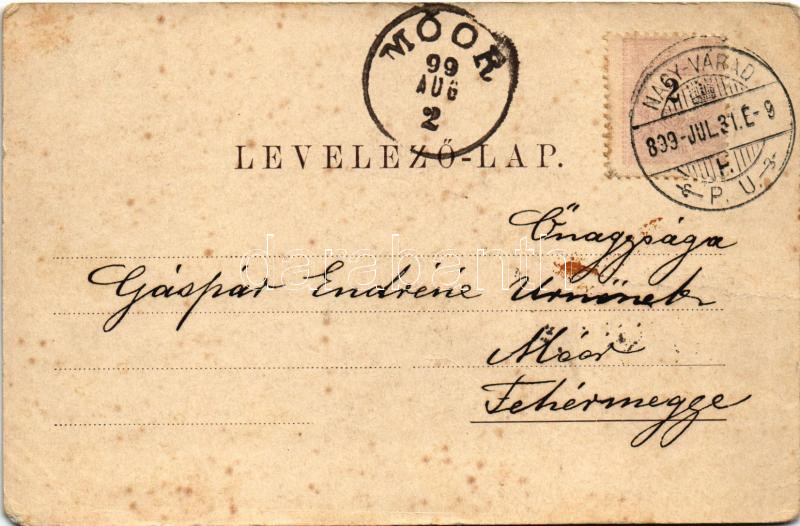 MÓOR
99
AUG
2
NAGY-VÁRAD
2
899-JUL.31.É-9
F.
P. U.
LEVELEZŐ-LAP.
Őnagysága
Gáspár Endréné Urnőnek
Móór
Fehérmegye
darabanth